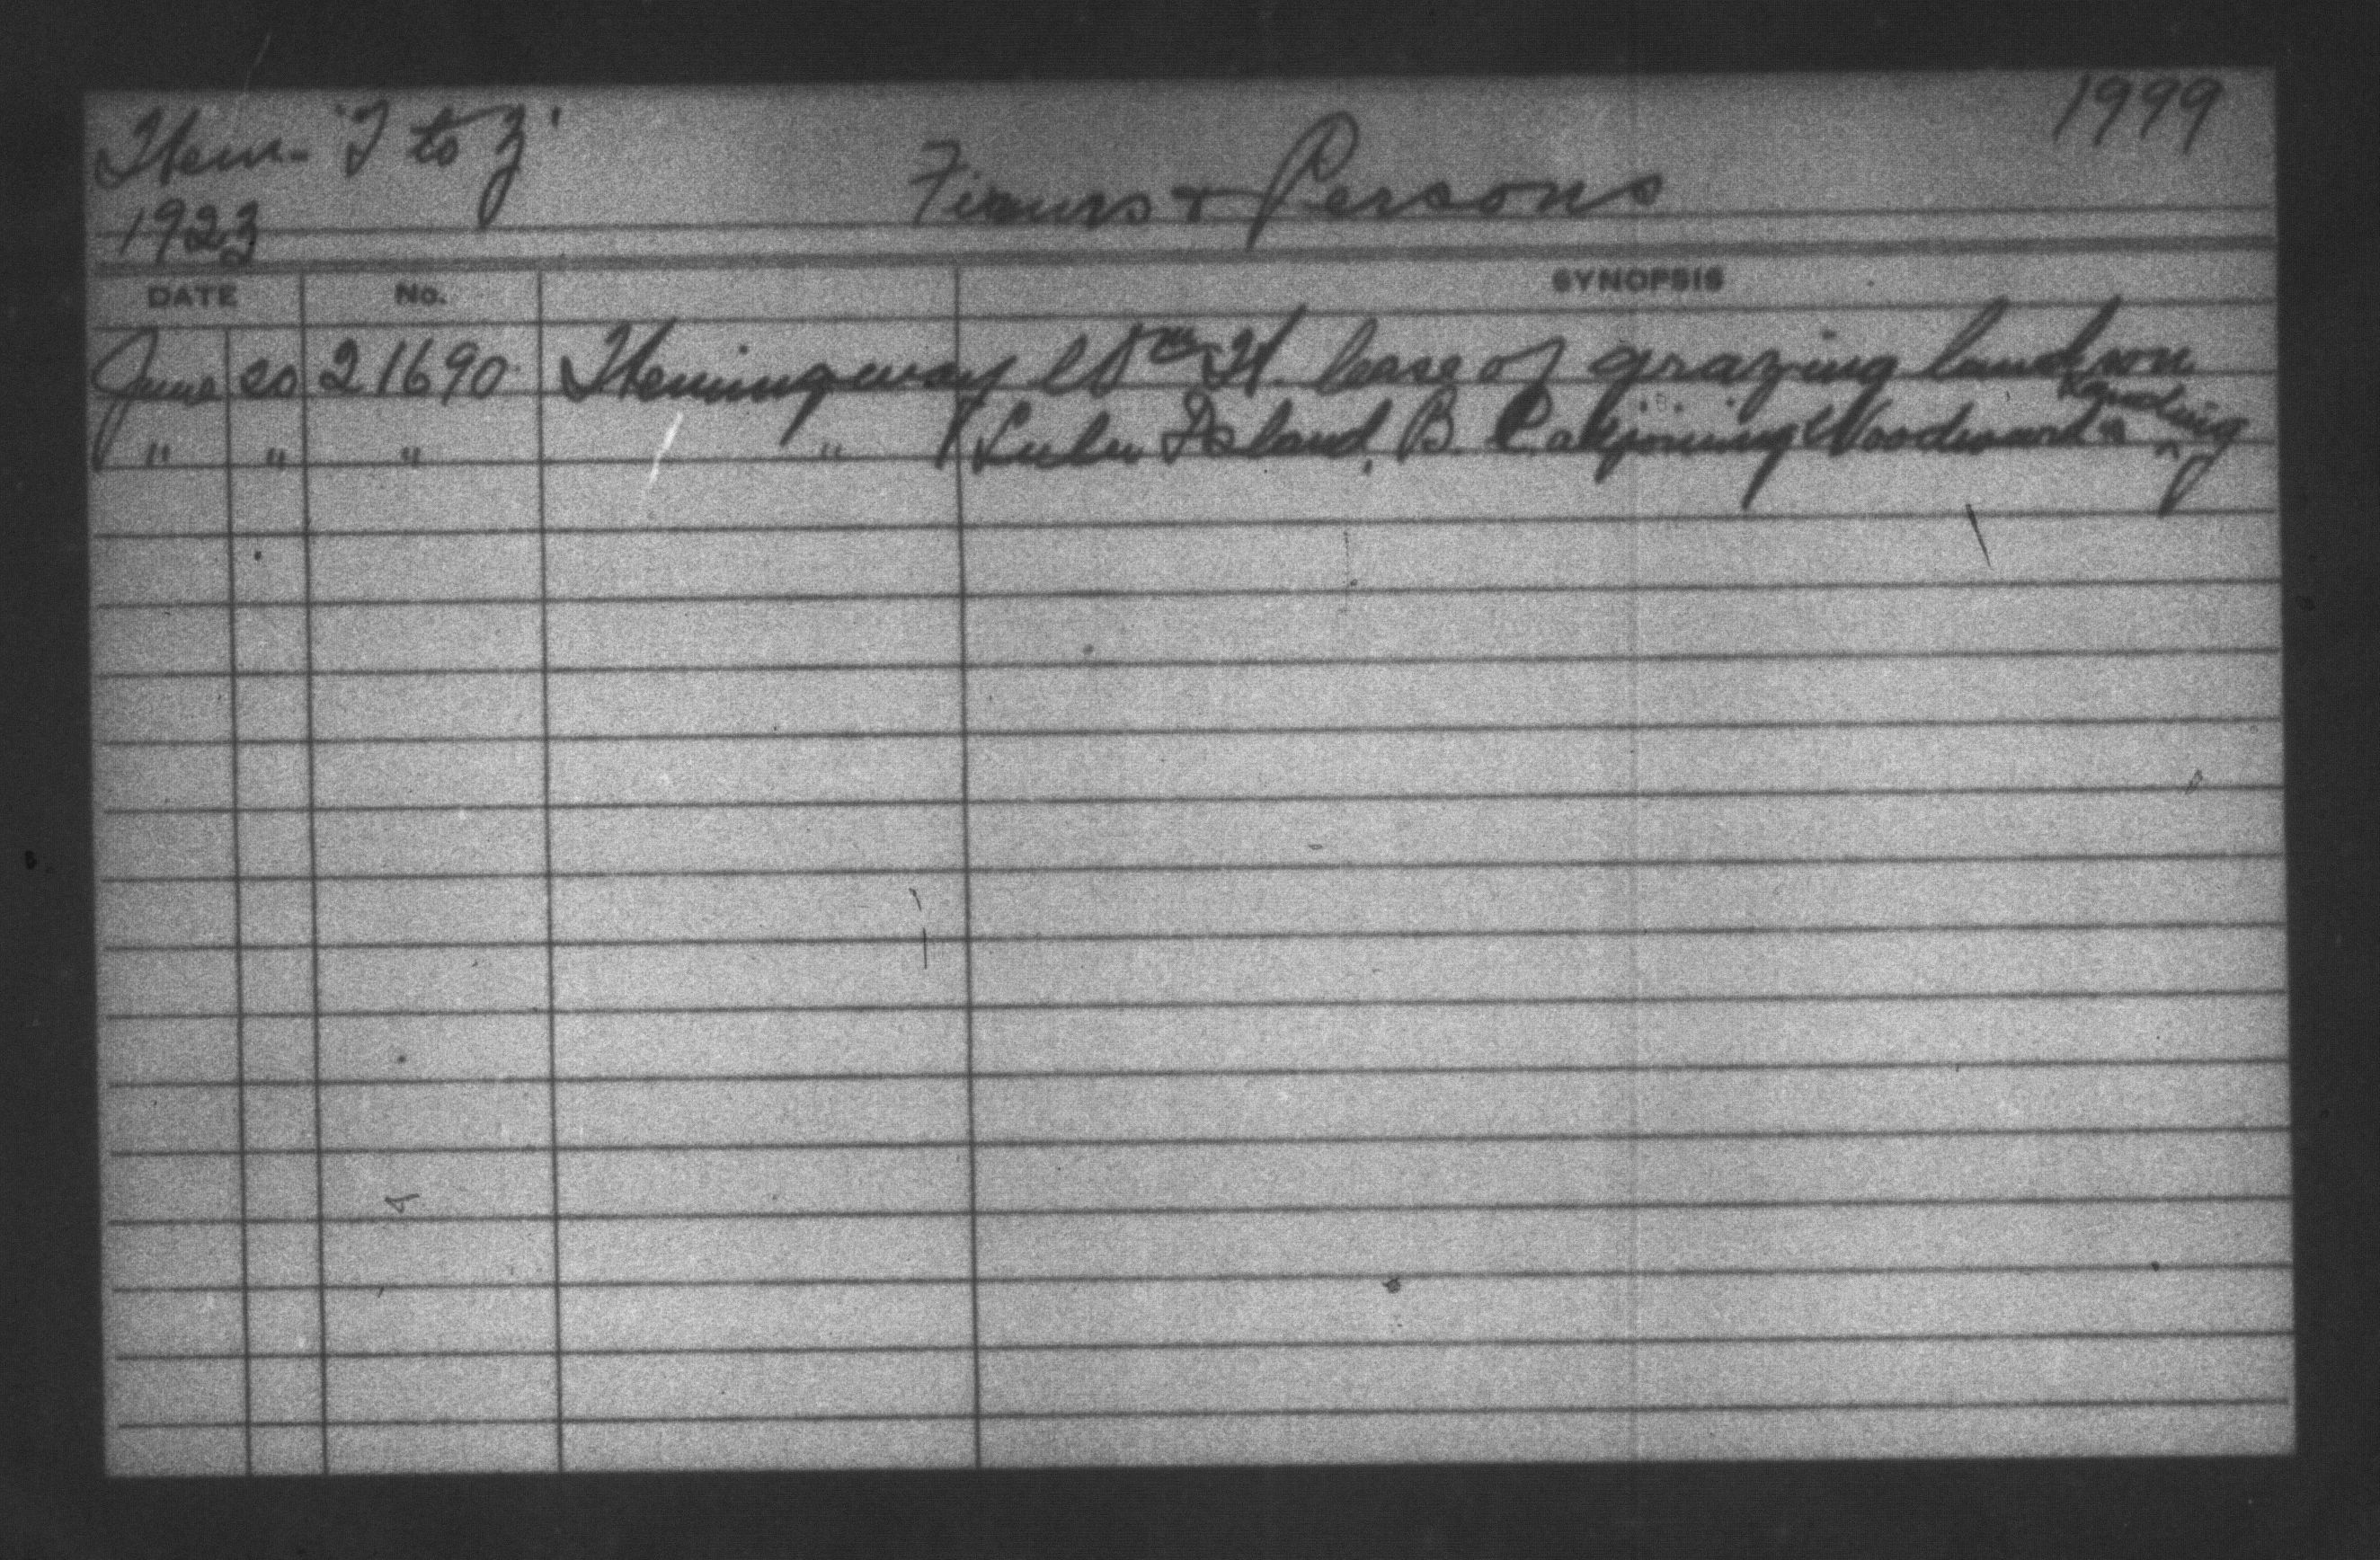 Hem- "I to Z"
1999
1923
Firms & Persons
DATE No. SYNOPSIS
June 20 21690 Hemingway Wm H. lease of grazing lands on
" " " " Lulu Island, B. C. adjoining Woodward's ^ Landing